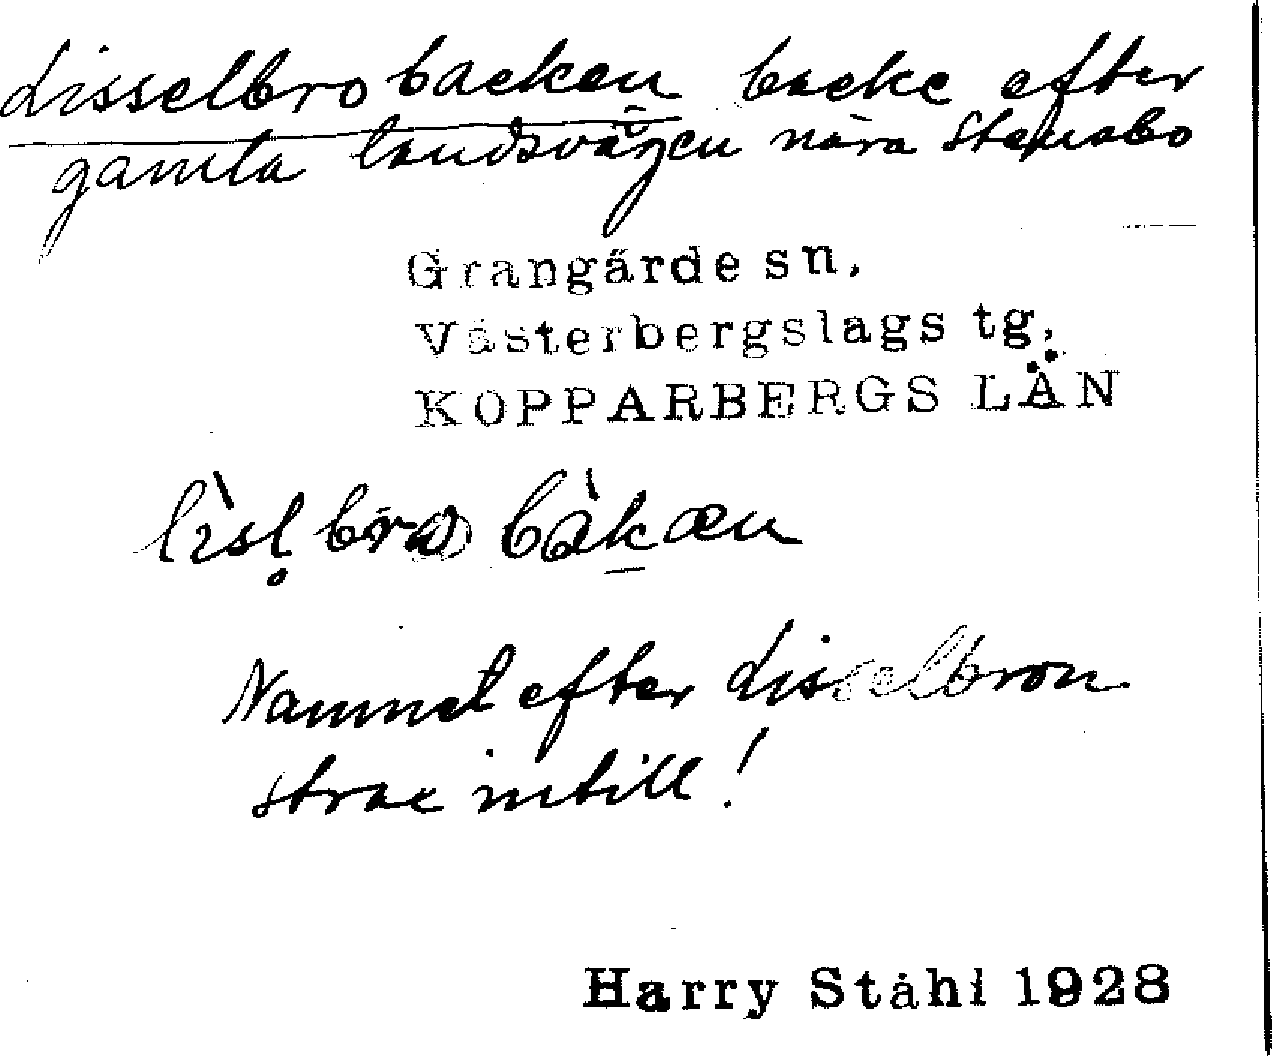 Lisselbrobacken backe efter
gamla landsvägen nära Stensbo
Grangärde sn,
Västerbergslags tg,
KOPPARBERGS LÄN
Namnet efter Lisselbron
strax intill!
Harry Ståhl 1928